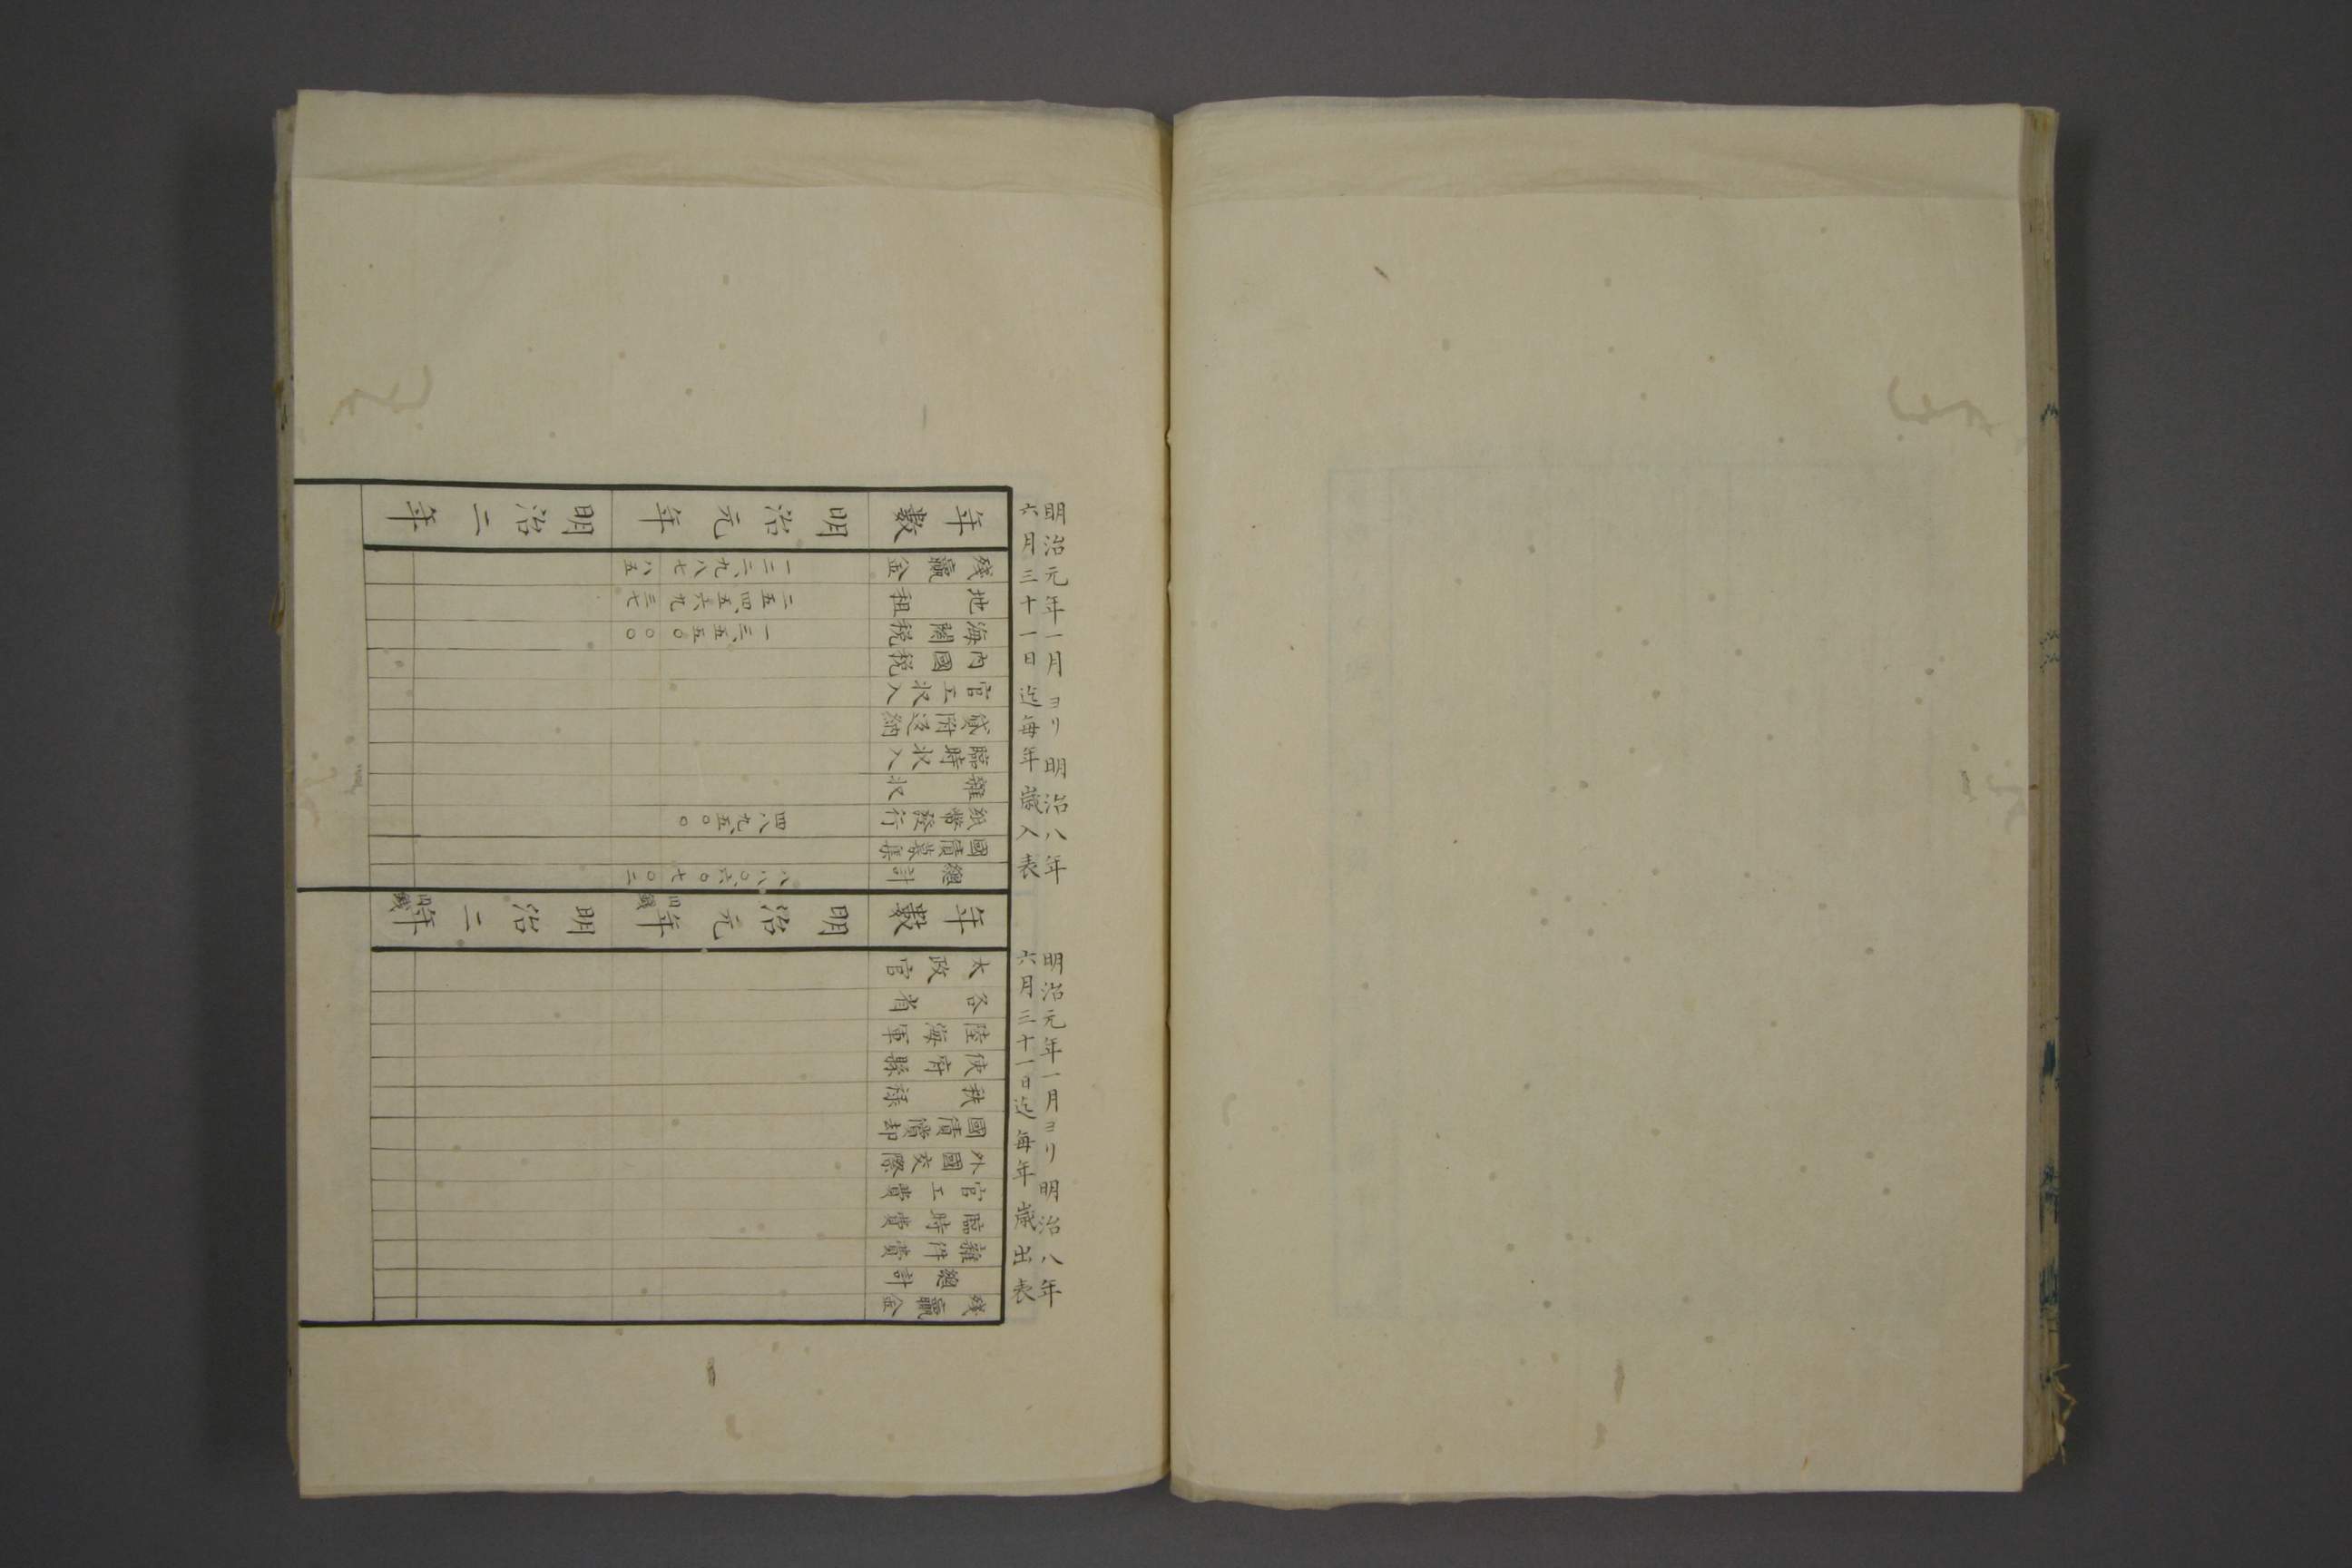 明治元年一月ヨリ明治八年
六月三十一日迄毎年歳入表
年數
明治元年
明治二年
殘贏金 一二二、九八七 八五
地租 二五四、五六九 三七
海關税 一三、五五〇 〇〇
内國税
官工收入
貸附返納
臨時收入
雜收
紙幣發行 四八九、五〇〇
國債募集
總計 八八〇、六〇七 〇二
明治元年一月ヨリ明治八年
六月三十一日迄毎年歳出表
年數
明治元年
明治二年
太政官
各省
陸海軍
使府縣
秩禄
國債償却
外國交際
官工費
臨時費
雜件費
總計
殘贏金